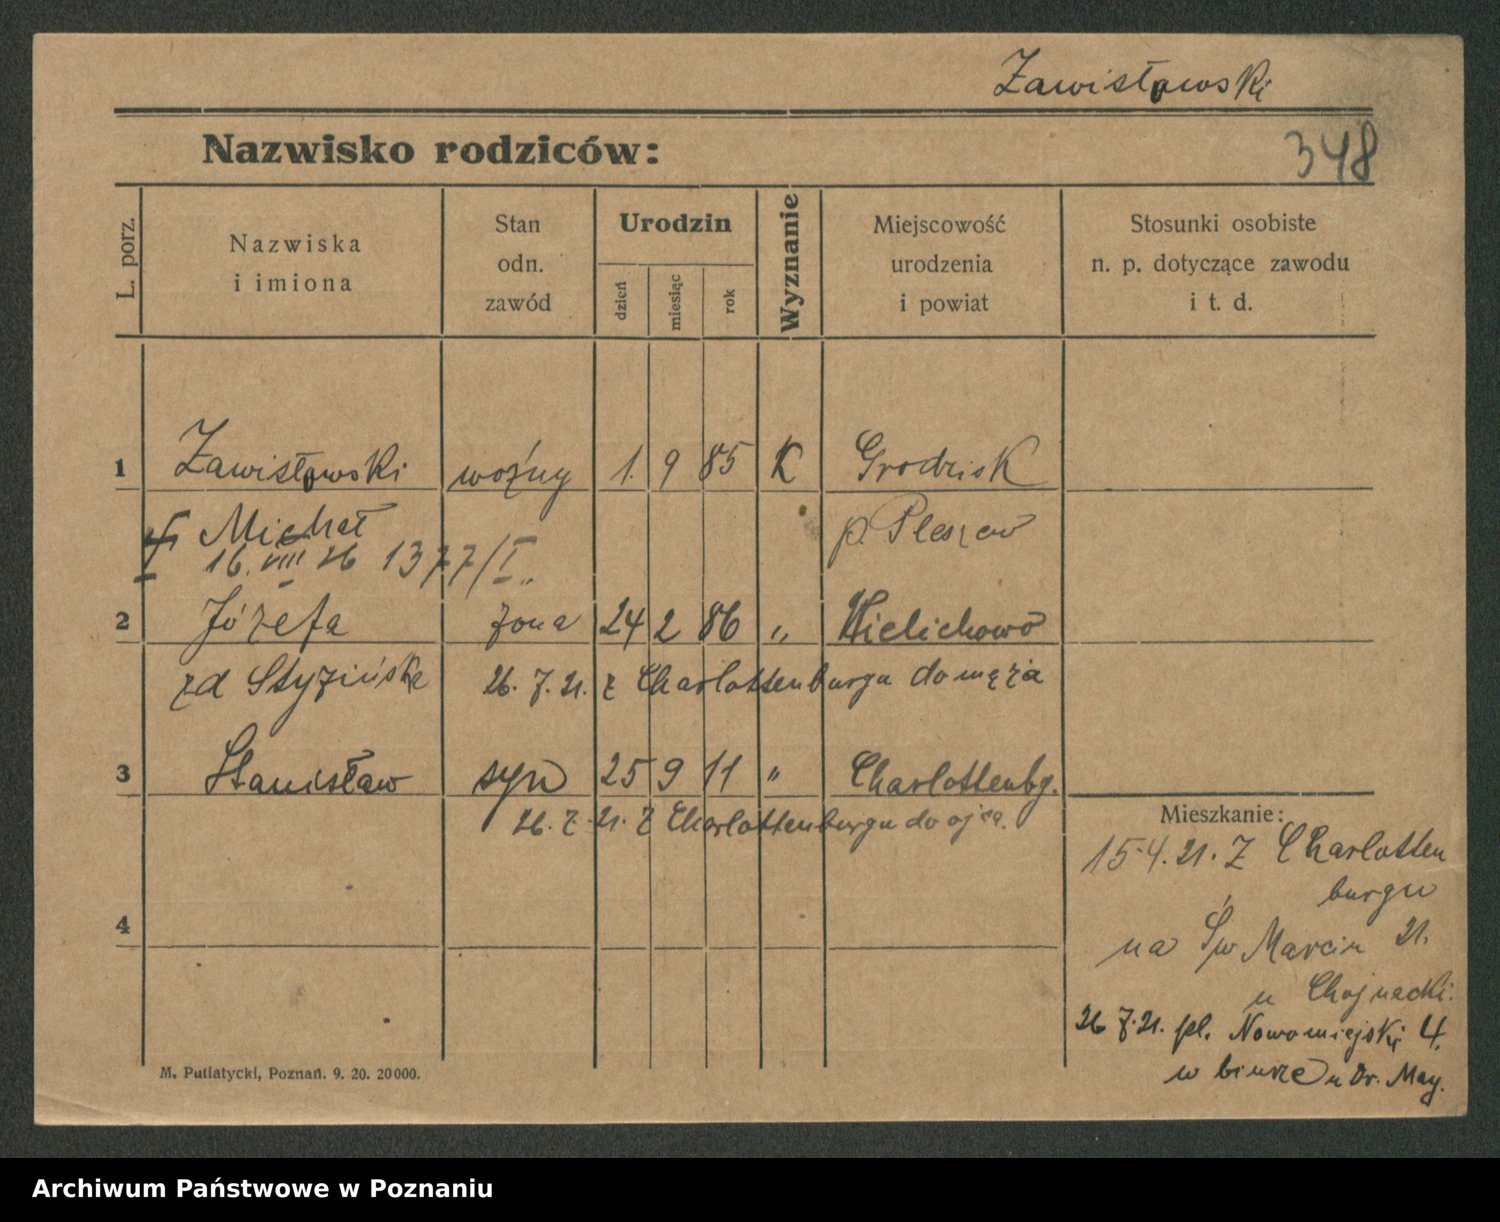 Zawisłowski
Nazwisko rodziców:
348
L. porz.
Nazwiska
i imiona
Stan
odn.
zawód
Urodzin
dzień
miesiąc
rok
Wyznanie
Miejscowość
urodzenia
i powiat
Stosunki osobiste
n. p. dotyczące zawodu
i t. d.
1 Zawisłowski woźny 1. 9 85 K Grodzisk
Michał p. Pleszew
16. VIII 26 1377/I
2 Józefa żona 24 2 86 " Wielichowo
zd Styzińska 26. 7. 21. z Charlottenburga do męża
3 Stanisław syn 25 9 11 " Charlottenbg.
26. 7. 21. z Charlottenburgu do ojca.
Mieszkanie:
15.4.21. z Charlotten
burgu
4
na Św Marcin 21.
u Chojnacki.
26 7.21. pl. Nowomiejski 4.
w biurze u Dr. May.
M. Putiatycki, Poznań. 9. 20. 20000.
Archiwum Państwowe w Poznaniu